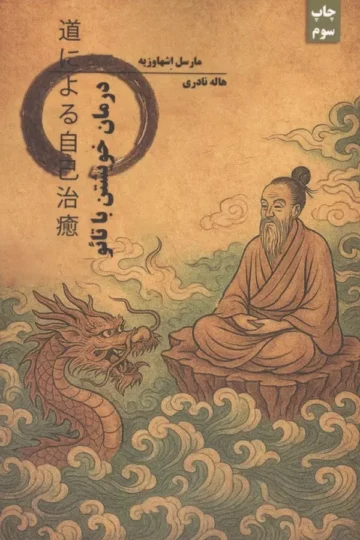 چاپ
سوم
مارسل اشهاوزیه
هاله نادری
درمان خویشتن با تائو
道による自己治癒